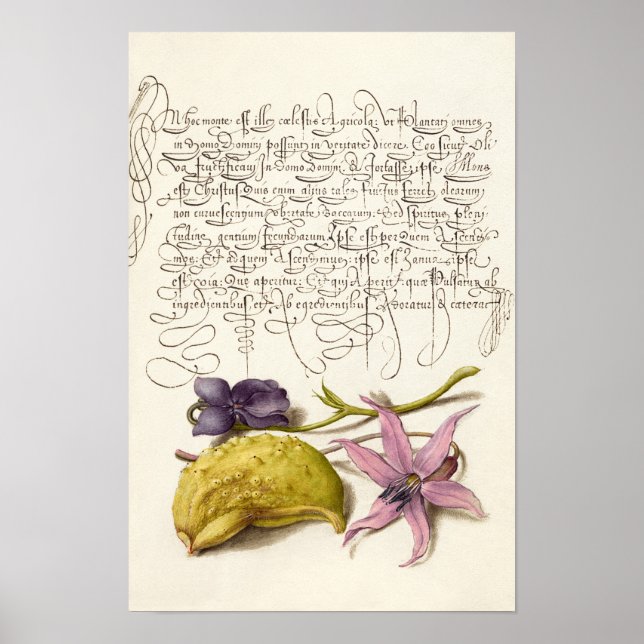 In hoc monte est ille cœlestis Agricola: vt Plantati omnes
in domo Domini possunt in veritate dicere, Ego sicut Oli
va fructificavi In domo Domini. & fortasse ipse Mons
est Christus. Quis enim alius tales fructus ferret olearum
non curuescentium vbertate Baccarum: Sed spiritus pleni
tudine gentium fecundarum. Ipse est per Quem Ascendi
mus: Et ad quem Ascendimus: ipse est Ianua, ipse
est via: Que aperitur: Et qui Aperit: qua Pulsatur ab
ingredientibus, et Ab egredientibus Adoratur & cætera